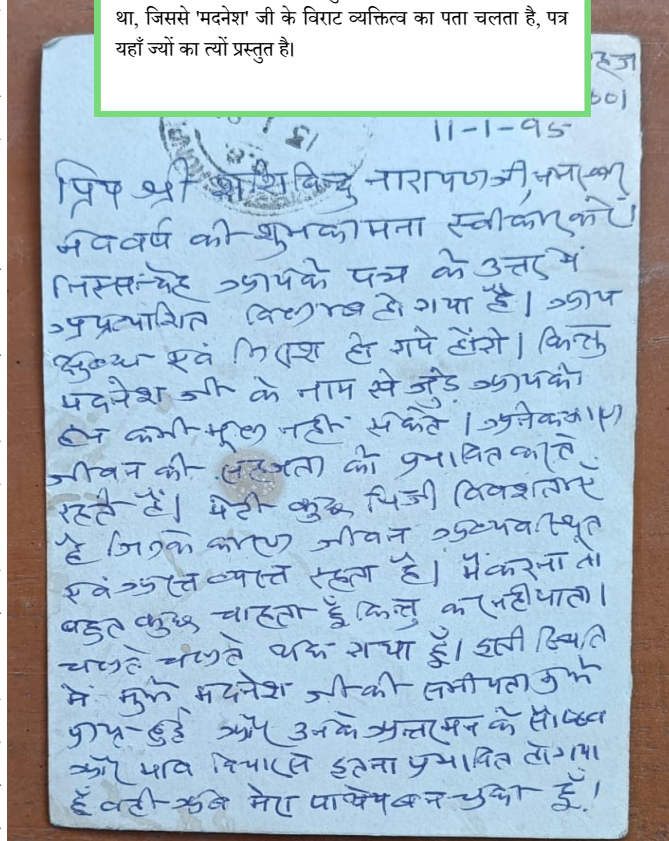 था, जिससे 'मदनेश' जी के विराट व्यक्तित्व का पता चलता है, पत्र
यहाँ ज्यों का त्यों प्रस्तुत है।
11-1-95
प्रिय श्री शशिबिन्दु नारायण जी, नमस्कार
नववर्ष की शुभकामना स्वीकार करें।
निस्सन्देह आपके पत्र के उत्तर में
अप्रत्याशित विलम्ब हो गया है। आप
क्षुब्ध एवं निराश हो गये होंगे। किन्तु
मदनेश जी के नाम से जुड़े आपको
हम कभी भूल नहीं सकते। अनेक कारण
जीवन की सहजता को प्रभावित करते
रहते हैं। मेरी कुछ निजी विवशताएँ
है जिनके कारण जीवन अव्यवस्थित
एवं अस्त व्यस्त रहता है। मैं करना तो
बहुत कुछ चाहता हूँ किन्तु कर नहीं पाता।
चलते चलते थक गया हूँ। इसी स्थिति
में मुझे मदनेश जी की समीपता मुझे
प्राप्त हुई और उनके अन्तरमन के सौष्ठव
और भाव विचार से इतना प्रभावित हो गया
हूँ वही अब मेरा पाथेय बन चुका हूँ।